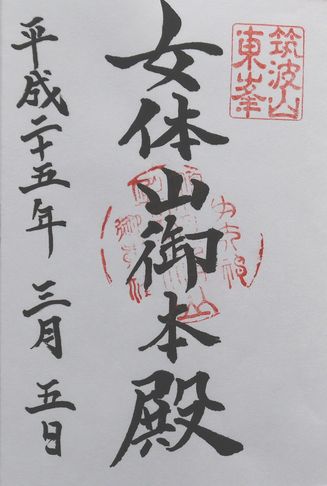 筑波山
東峯
女体山御本殿
平成二十五年 三月 五日